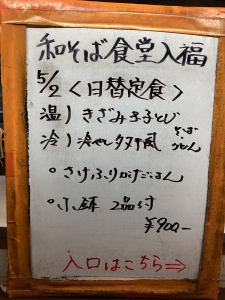 和そば食堂入福
5/2 <日替定食>
温) きざみ玉子とじ
冷) 冷やしタヌキ風 そば・うどん
• さけふりかけごはん
• 小鉢 2品付
¥900-
入口はこちら⇒